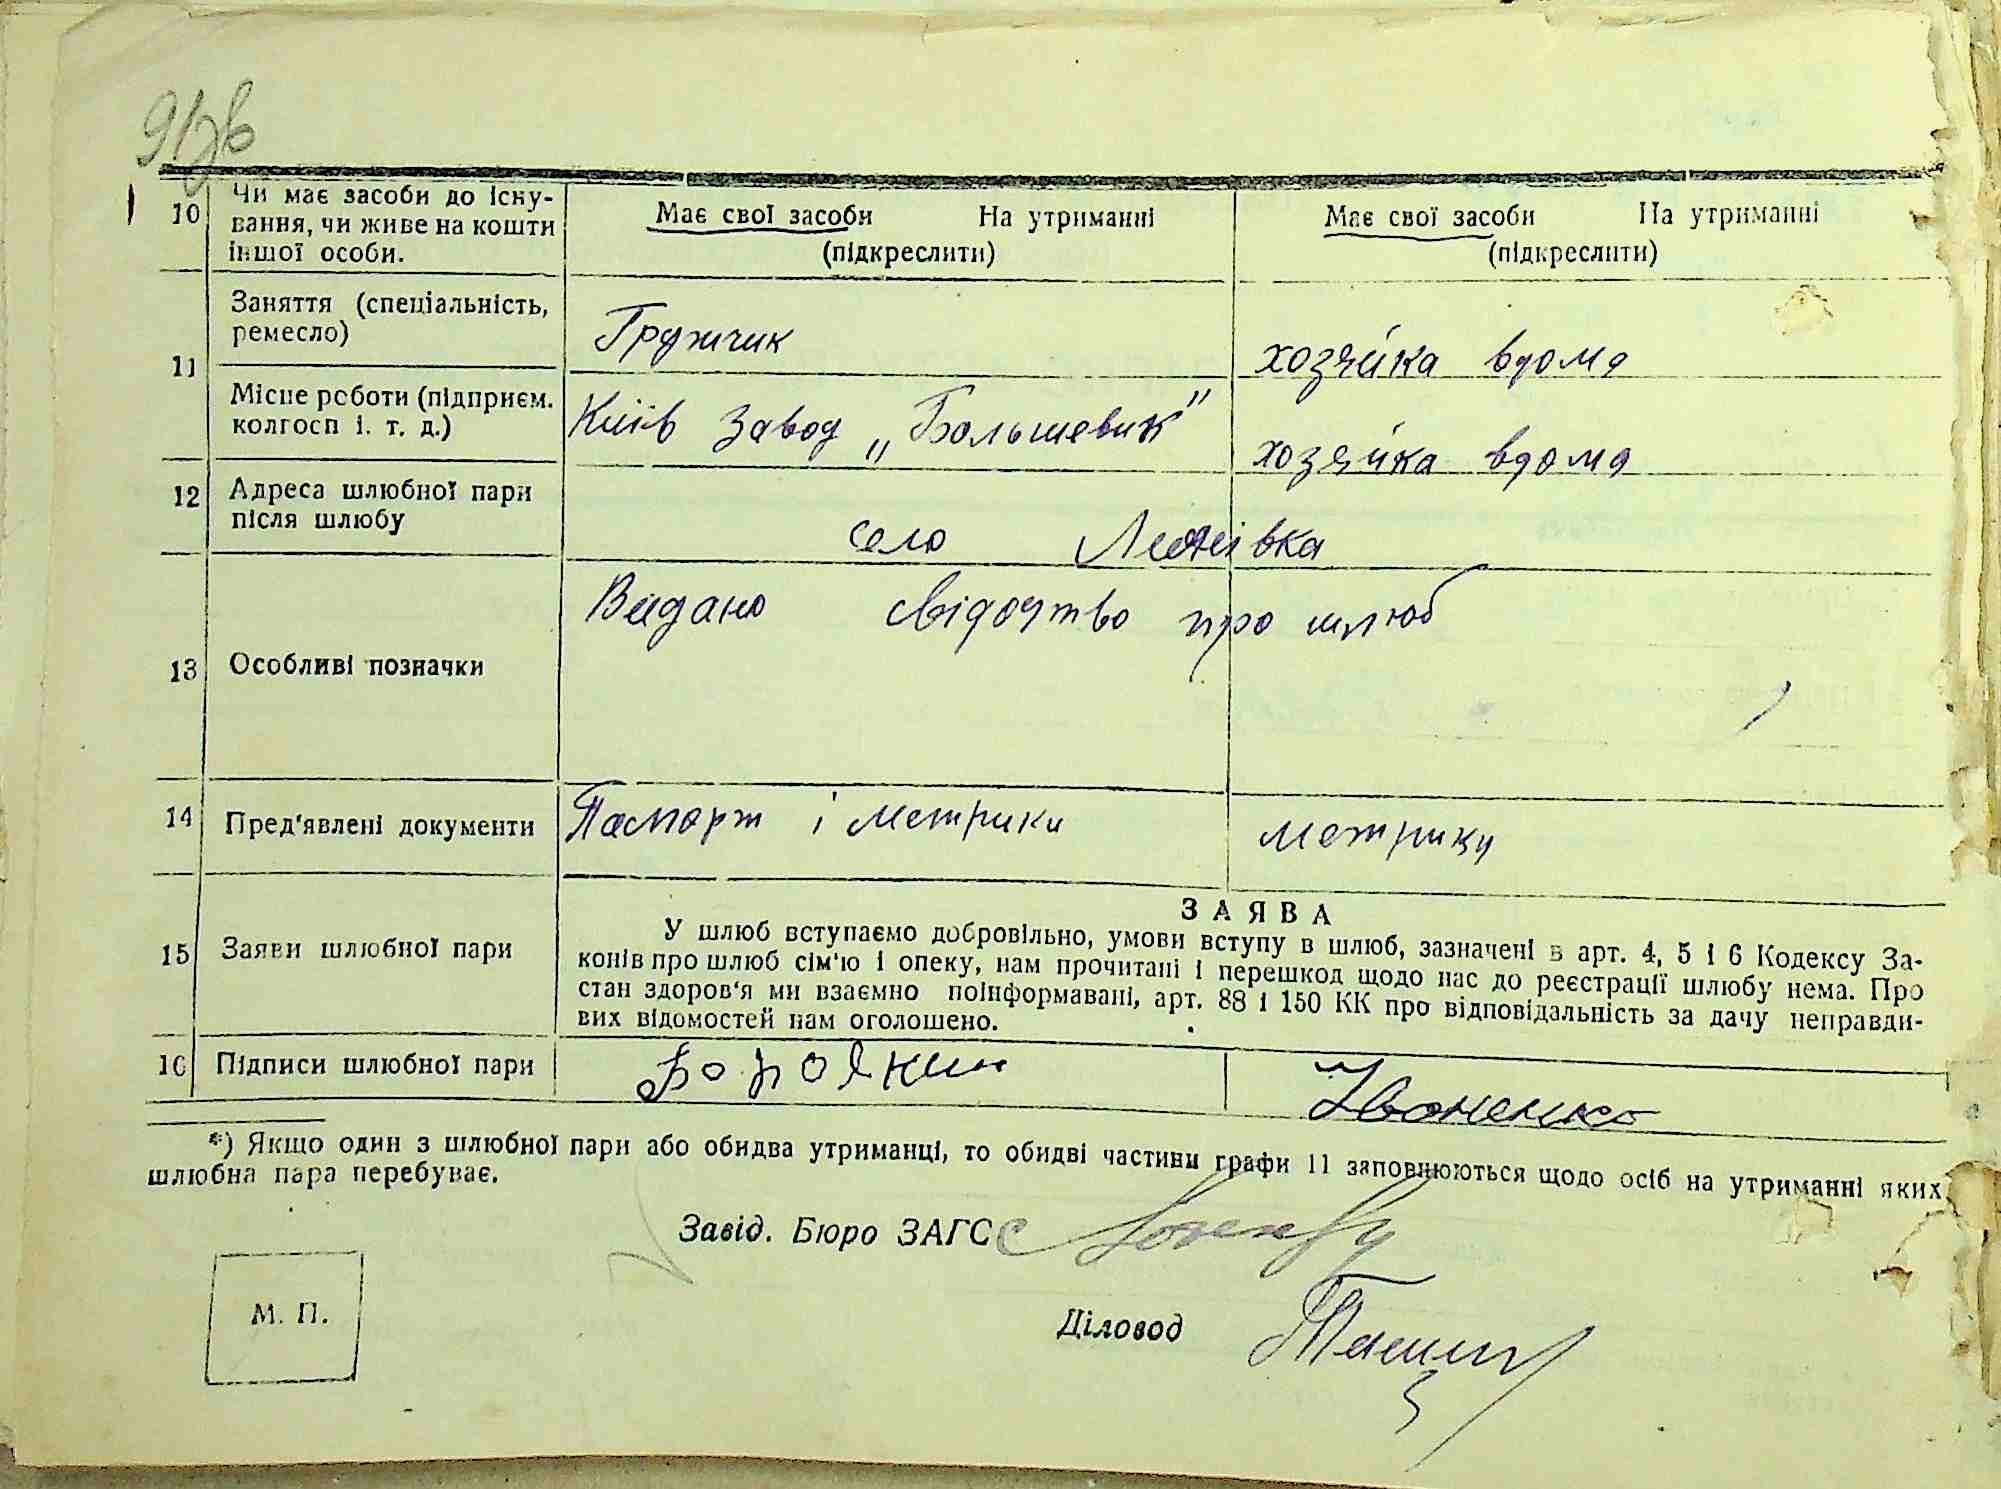 10 Чи має засоби до існу-
вання, чи живе на кошти
іншої особи.
Має свої засоби На утриманні
(підкреслити)
Має свої засоби На утриманні
(підкреслити)
11 Заняття (спеціальність,
ремесло)
Грузчик
хозяйка вдома
Місце роботи (підприєм.
колгосп і. т. д.)
Київ завод „Большевик"
хозяйка вдома
12 Адреса шлюбної пари
після шлюбу
село
13 Особливі позначки
Видано свідоцтво про шлюб
14 Пред'явлені документи
Паспорт і метрики
метрику
15 Заяви шлюбної пари
ЗАЯВА
У шлюб вступаємо добровільно, умови вступу в шлюб, зазначені в арт. 4, 5 і 6 Кодексу За-
конів про шлюб сім'ю і опеку, нам прочитані і перешкод щодо нас до реєстрації шлюбу нема. Про
стан здоров'я ми взаємно поінформавані, арт. 88 і 150 КК про відповідальність за дачу неправди-
вих відомостей нам оголошено.
16 Підписи шлюбної пари
Івоненко
*) Якщо один з шлюбної пари або обидва утриманці, то обидві частини графи 11 заповнюються щодо осіб на утриманні яких
шлюбна пара перебуває.
Завід. Бюро ЗАГС
М. П.
Діловод